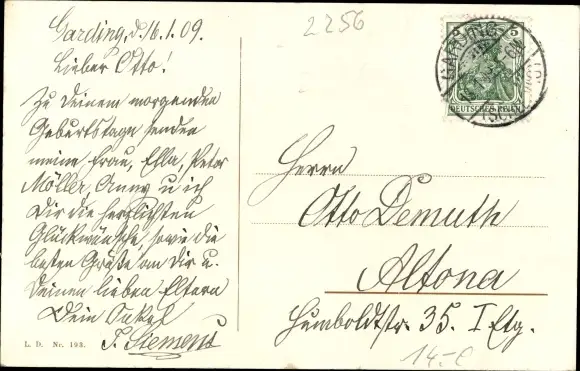 Garding, d. 16.1.09.
Lieber Otto!
Zu Deinem morgenden
Geburtstage senden
meine Frau, Ella, Peter
Möller, Anny u ich
Dir die herzlichsten
Glückwünsche, sowie die
besten Grüße an Dir u.
Deinen lieben Eltern
Dein Onkel
J. Siemens
L. D. Nr. 193.
2256
5
GARDING
DEUTSCHES REICH
Herrn
Otto Demuth
Altona
Humboldtstr. 35. I Etg.
14.-€